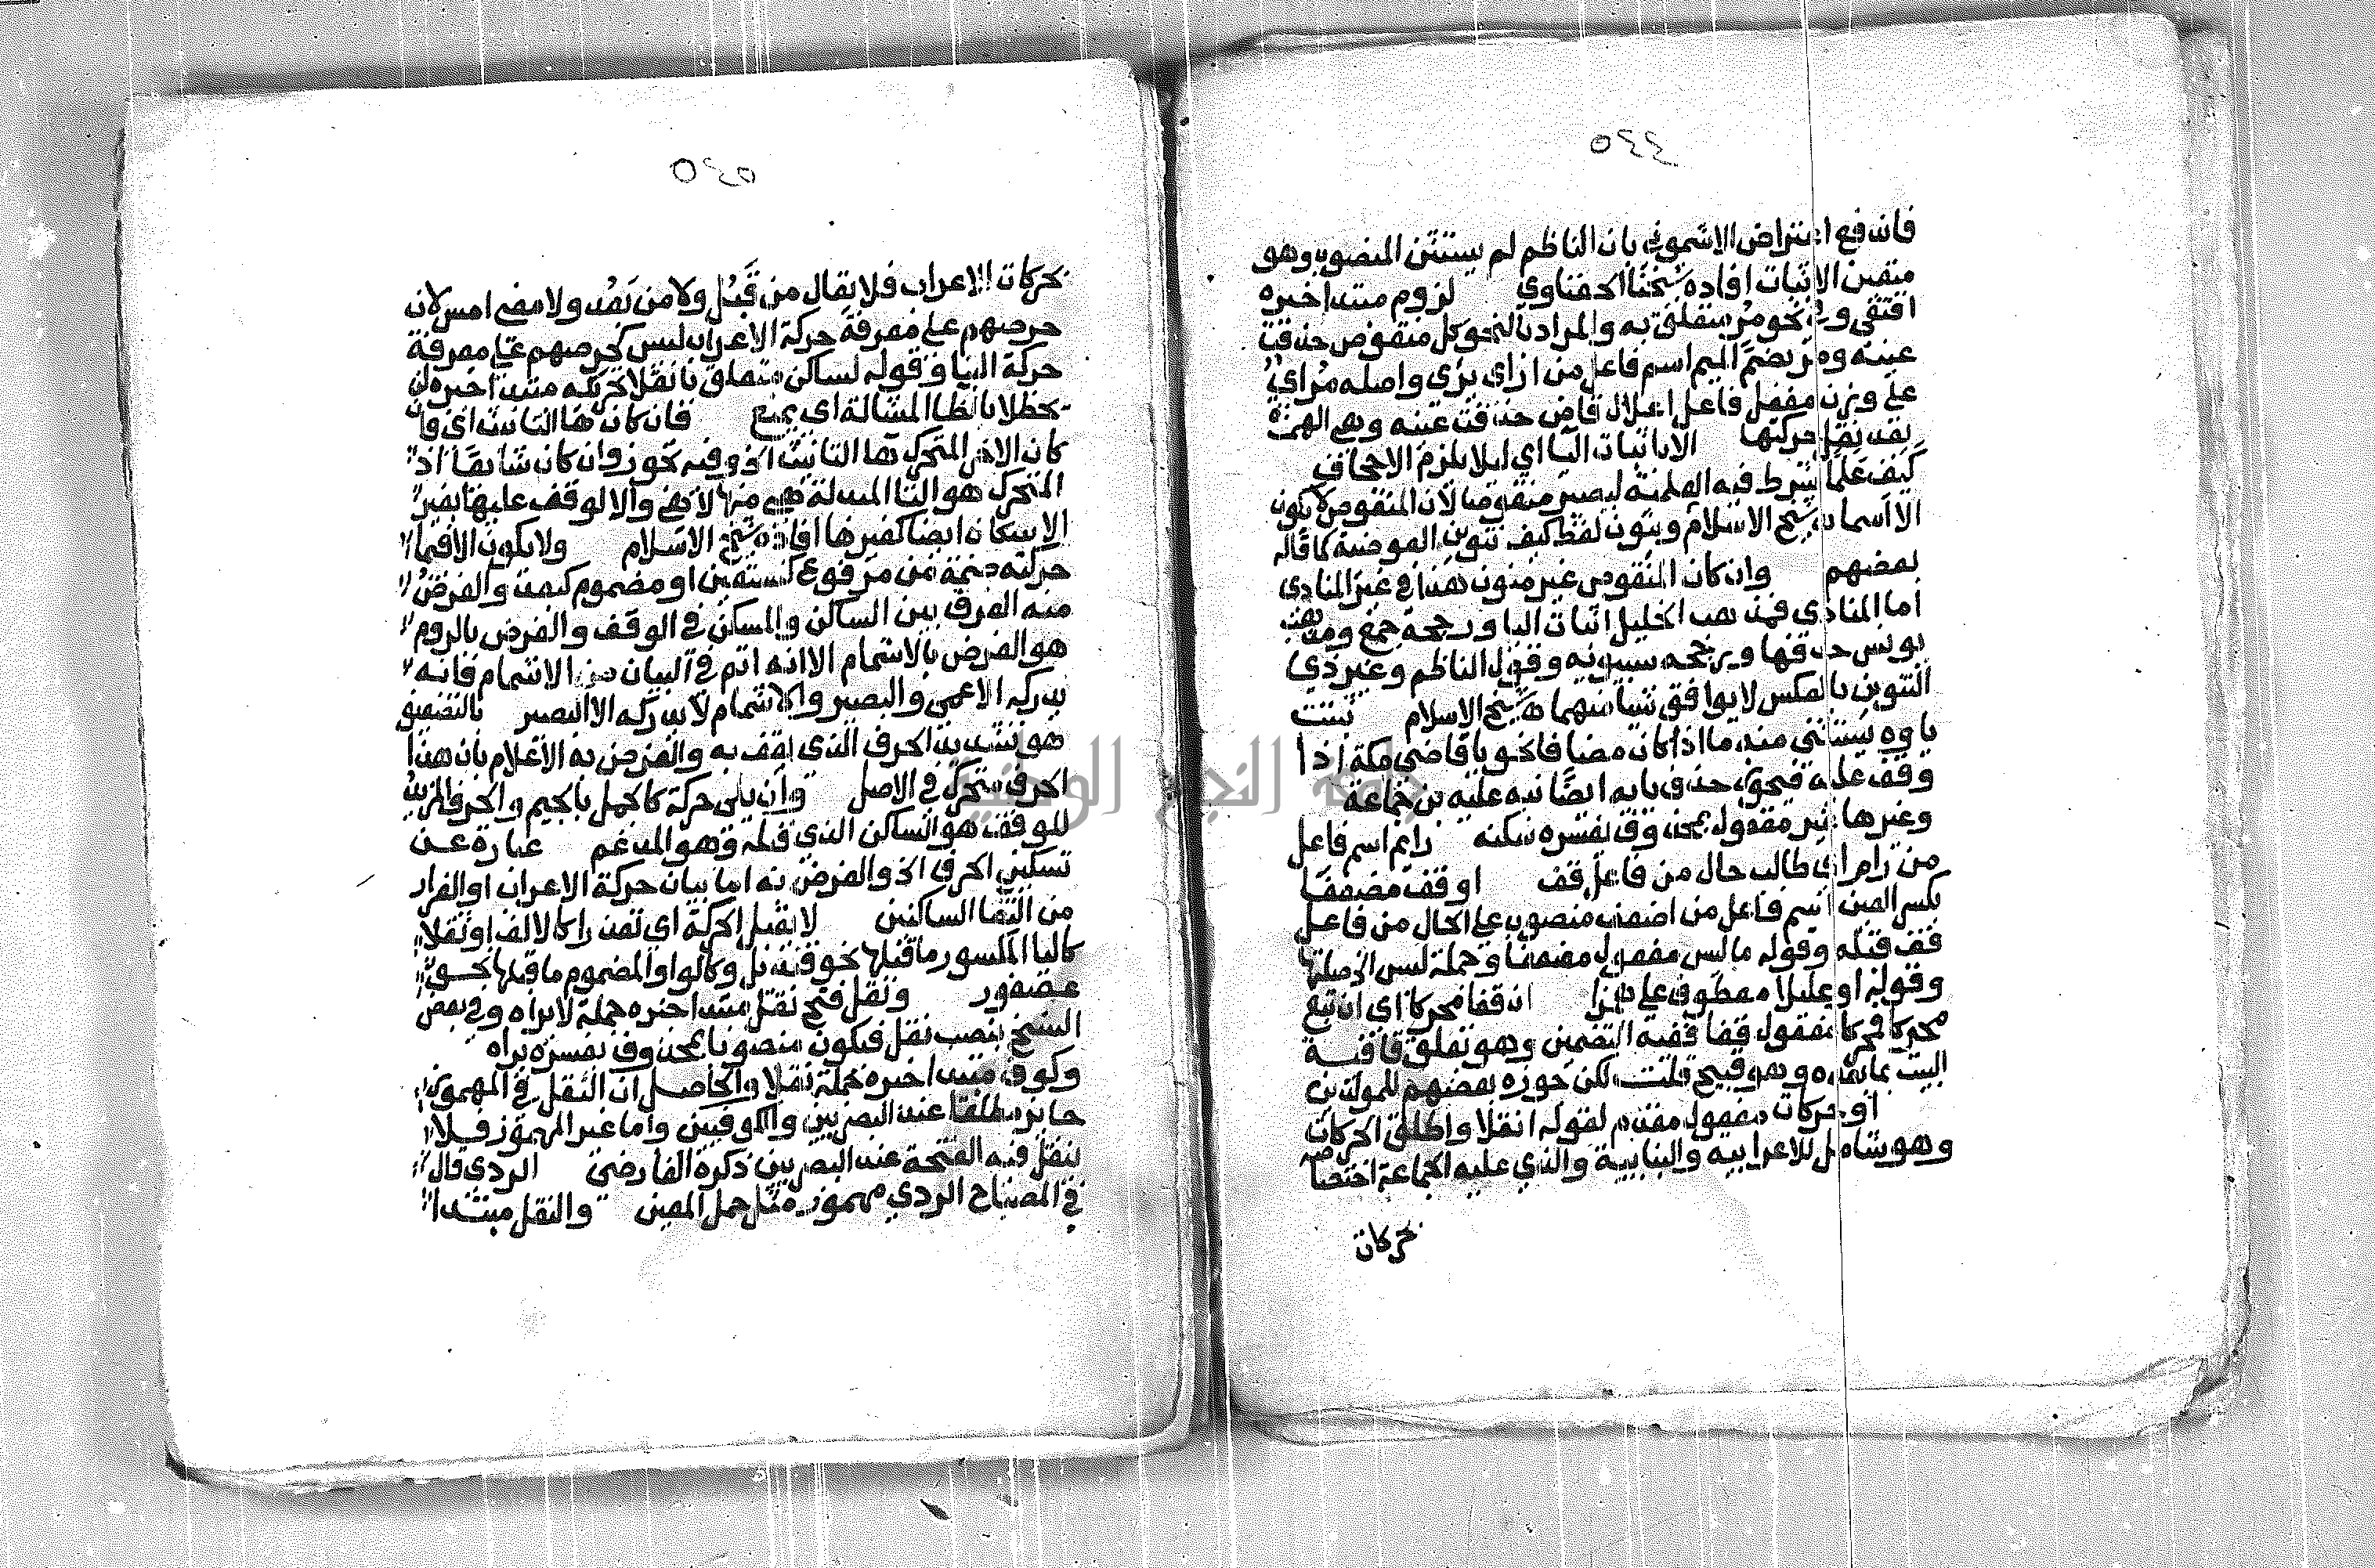 ٥٤٤
فاندفع اعتراض الاشموني بان الناظم لم يستثن المنصوب وهو
متعين الاثبات افاده شيخنا الحفناوي لزوم مبتدا خبره
اقتفي وفي نحو مر متعلق به والمراد بالنحو كل منقوص حذفت
عينه ومر بضم الميم اسم فاعل من اراي يري واصله مرأي
علي وزن مفعل فاعل اعلال قاض حذفت عينه وهي الهمزة
بعد نقل حركتها الا باثبات اليا اي ليلا يلزم الاجحاف
كيف علما شرط فيه العلمية ليصير منقوصا لان المنقوص لا يكون
الا اسما شيخ الاسلام وينون لفظ كيف تنوين العوضية كما قاله
بعضهم وان كان المنقوص غير منون هذا في غير المنادي
اما المنادي فمذهب الخليل اثبات اليا ورجحه جمع ومذهب
يونس حذفها ويرجحه سيبويه وقول الناظم وغير ذي
التنوين بالعكس لا يوافق شيا منهما شيخ الاسلام ثبتت
ياوه يستثني منه ما اذا كان مضافا نحو يا قاضي مكة اذا
وقف عليه فيجوز حذف يايه ايضا نبه عليه بن جماعة
وغيرها غير مفعول بمحذوف يفسره سكنه رايم اسم فاعل
من رام اي طالب حال من فاعل قف او قف مضعفا
بكسر العين اسم فاعل من اضعف منصوب علي الحال من فاعل
قف قبله وقوله ما ليس مفعول مضعفا وجملة ليس الخ صلتها
وقوله او عليلا معطوف علي همزا ان قفا محركا اي ان تبع
محركا فمحركا مفعول قفا ففيه التضمين وهو تعلق قافية
البيت بما بعده وهو قبيح قلت لكن جوزه بعضهم للمولدين
او حركات مفعول مقدم لقوله انقلا واطلق الحركات
وهو شامل للاعرابيه والبنايية والذي عليه الجماعة اختصاصه
بحركات
٥٤٥
بحركات الاعراب فلا يقال من قبل ولا من بعد ولا مضي امس لان
حرصهم علي معرفة حركة الاعراب ليس كحرصهم علي معرفة
حركة البنا وقوله لساكن متعلق بانقلا تحريكه مبتدا خبره لن
يحظلا بالظا المشالة اي يمنع فان كان هذا التانيث اي وان
كان الاخر المتحرك هاء التانيث اذ وفيه تجوز وان كان شايعا اذ
المتحرك هو التا المبدلة هي منها لا هي والا لوقف عليها بغير
الاسكان ايضا كغيرها افاده شيخ الاسلام ولا يكون الا فيما
حركته ضمة من مرفوع كنستعين او مضموم كيعبد والغرض
منه الفرق بين الساكن والمسكن في الوقف والغرض بالروم
هو الغرض بالاشمام الا انه اتم في البيان من الاشمام فانه
يدركه الاعمي والبصير والاشمام لا يدركه الا البصير بالتضعيف
هو تشديد الحرف الذي يقف به والغرض به الاعلام بان هذا
الحرف متحرك في الاصل وان يلي حركة كالجمل بالجيم والحرف المزيد
للوقف هو الساكن الذي قبله وهو المدغم عبارة عن
تسكين الحرف الاخر والغرض به اما بيان حركة الاعراب او الفرار
من التقا الساكنين لا يقبل الحركة اي تعذرا كالالف او ثقلا
كاليا المكسور ما قبلها نحو قنديل وكالواو المضموم ما قبلها نحو
عصفور ونقل فتح نقل مبتدا خبره جملة لا يراه وفي بعض
النسخ بنصب نقل فيكون منصوبا بمحذوف يفسره يراه
وكوف مبتدا خبره جملة نقلا والحاصل ان النقل في المهموز
جايز مطلقا عند البصريين والكوفيين واما غير المهموز فلا
ينقل فيه الفتحة عند البصريين ذكره الفارضي الردي قال
في المصباح الردي مهموز مثل حمل المعين والنقل مبتدا
جامعة النجاح الوطنية